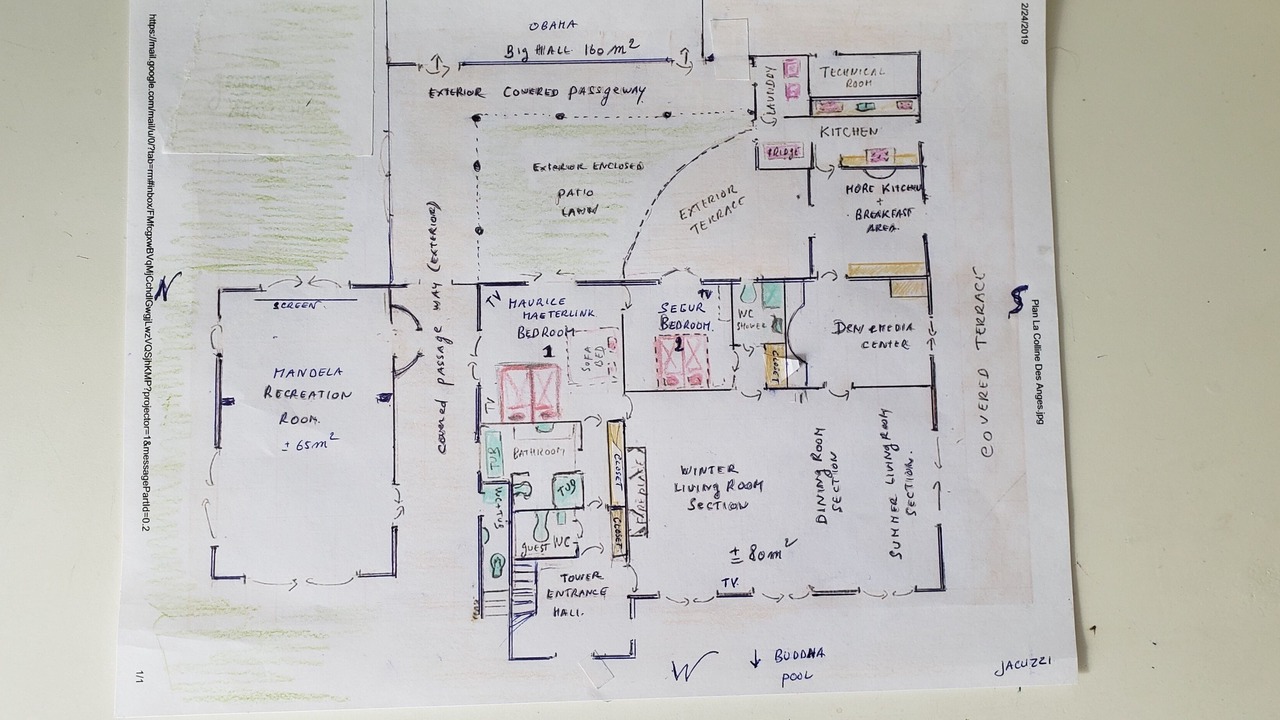 OBAMA
BIG HALL 160 m²
EXTERIOR COVERED PASSGEWAY
LAUNDRY
TECHNICAL
ROOM
KITCHEN
FRIDGE
EXTERIOR ENCLOSED
PATIO
LAWN
EXTERIOR
TERRACE
MORE KITCHEN
+
BREAKFAST
AREA.
COVERED PASSAGE WAY (EXTERIOR)
SCREEN.
TV
MAURICE
MAETERLINK
BEDROOM
1
SOFA
BED
TV
TV
SEGUR
BEDROOM.
2
WC
SHOWER
CLOSET
DEN/MEDIA
CENTER
COVERED TERRACE
MANDELA
RECREATION
ROOM.
± 65m²
TUB
BATHROOM
TUB
WC+TUB
CLOSET
CLOSET
FIREPLACE
GUEST WC
WINTER
LIVING ROOM
SECTION
DINING ROOM
SECTION
SUMMER LIVING ROOM
SECTION.
± 80m²
TV.
TOWER
ENTRANCE
HALL.
W
↓ BUDDHA
POOL
JACUZZI
N
https://mail.google.com/mail/u/0/?tab=rm#inbox/FMfcgxwBVqMjCchdlGwgjLwzVQSjhKMP?projector=1&messagePartId=0.2
1/1
2/24/2019
Plan La Colline Des Anges.jpg